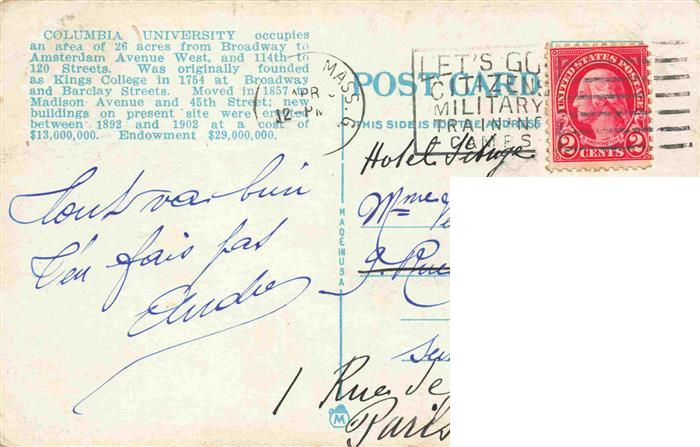 COLUMBIA UNIVERSITY occupies
an area of 26 acres from Broadway to
Amsterdam Avenue West, and 114th to
120 Streets. Was originally founded
as Kings College in 1754 at Broadway
and Barclay Streets. Moved in 1857 to
Madison Avenue and 45th Street; new
buildings on present site were erected
between 1892 and 1902 at a cost of
$13,000,000. Endowment $29,000,000.
Tout va bien
T'en fais pas
André
MADE IN USA
M
MASS. 6
APR
12 - PM
POST CARD
THIS SIDE IS FOR THE ADDRESS
LET'S GO
CITIZENS
MILITARY
TRAINING
CAMPS
UNITED STATES POSTAGE
WASHINGTON
2 CENTS 2
Hotel
Mme
9. Rue
1 Rue de
Paris